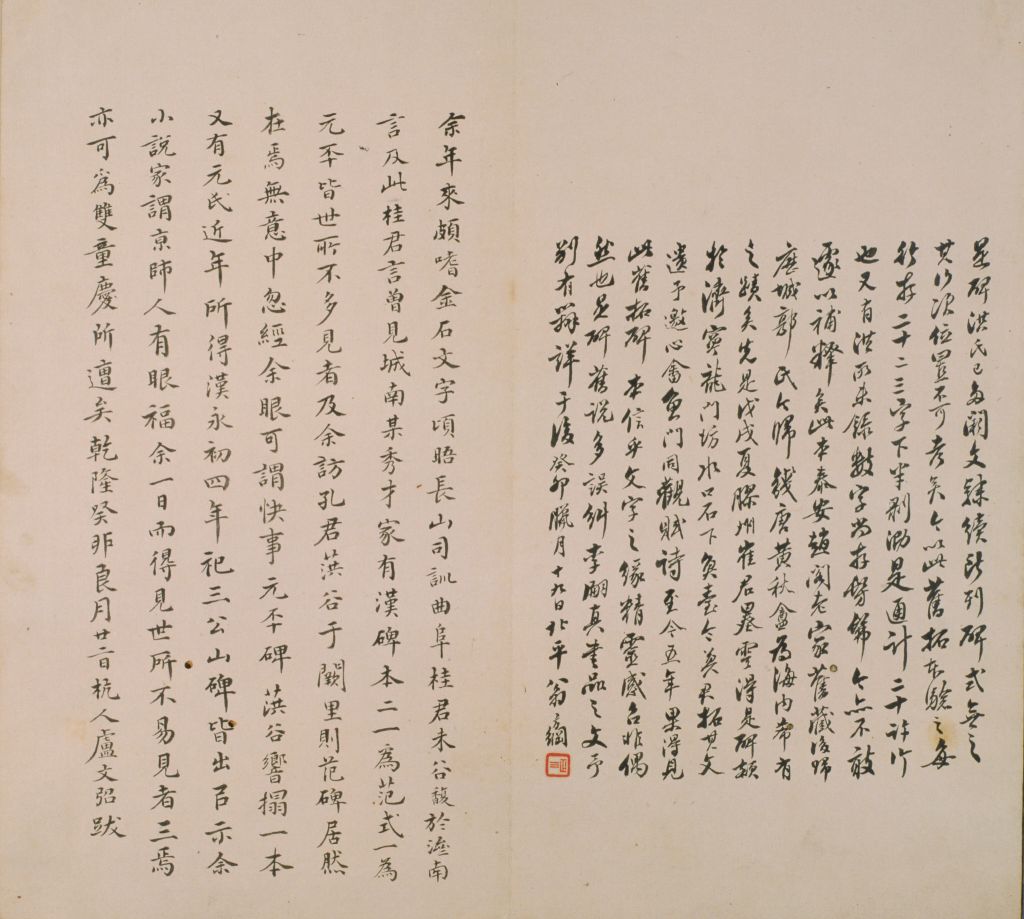 是碑洪氏已多闕文隸續所列碑式無之
其行次位置不可考矣今以此舊拓本驗之每
行存二十二三字下半剝泐是通計三十許行
也又有洪所未錄數字尚存勢歸今亦不敢
遽以補釋矣此本泰安趙閣老家舊藏後歸
鹿城郭氏今歸錢唐黃秋盦為海內希有
之蹟矣先是戊戌夏膠州崔君墨雲得是碑額
於濟寧龍門坊水口石下負臺今
遺予邀心畬魚門同觀賦詩至今五年果得見
此舊拓碑本信乎文字之緣精靈感召非偶
然也是碑舊說多誤糾李嗣真書品之文予
別有辨詳于後癸卯臘月十九日北平翁綱
余年來頗嗜金石文字頃晤長山司訓曲阜桂君未谷馥於濟南
言及此桂君言曾見城南某秀才家有漢碑本二一為范式一為
元丕皆世所不多見者及余訪孔君葓谷于闕里則范碑居然
在焉無意中忽經余眼可謂快事元丕碑葓谷響搨一本
又有元氏近年所得漢永初四年祀三公山碑皆出㠯示余
小說家謂京師人有眼福余一日而得見世所不易見者三焉
亦可為雙童慶所遭矣乾隆癸丣良月廿二日杭人盧文弨跋